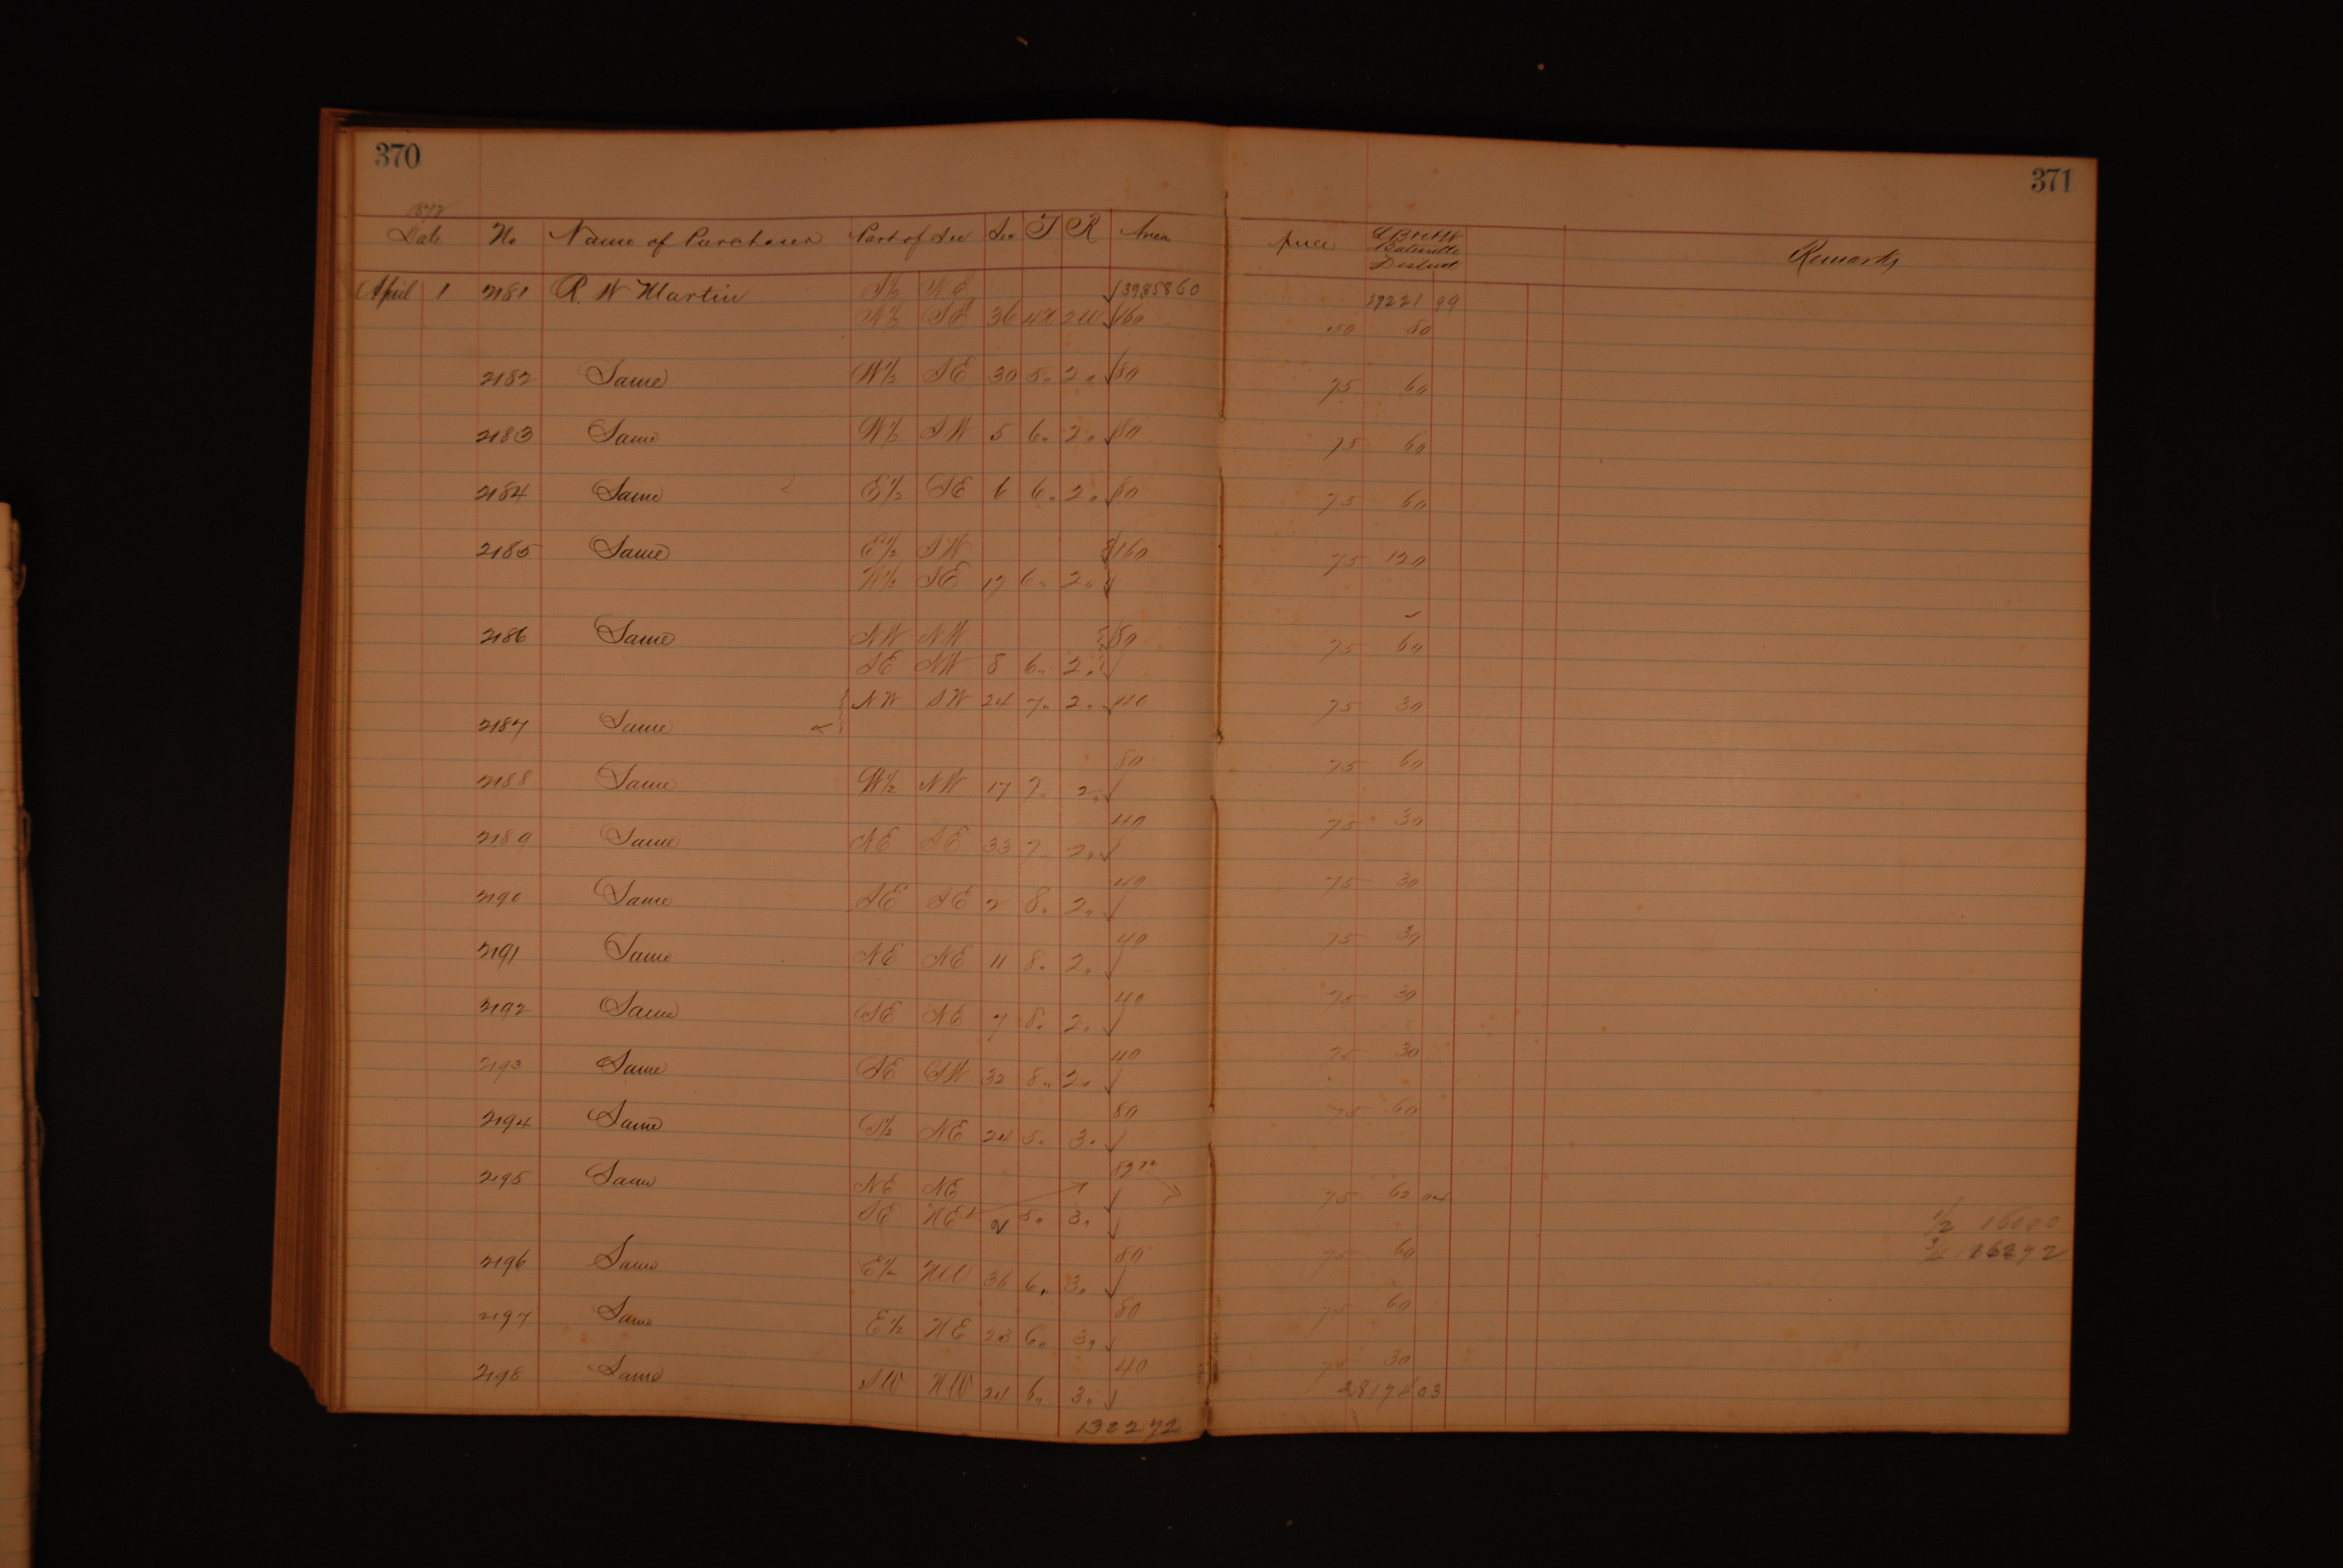 370
371
1872
Date No Name of Purchaser Part of Sec Sec T R Area price Batesville District Remarks
April 1 2181 R. W Martin S½ NE 39,858 60 27221 99
N½ SE 36 4N 2W 160 50 80
2182 Same W½ SE 30 5" 2" 80 75 60
2183 Same W½ SW 5 6" 2" 80 75 60
2184 Same E½ SE 6 6" 2" 80 75 60
2185 Same E½ SW 160 75 120
W½ SE 17 6" 2"
2186 Same NW NW 80 75 60
SE NW 8 6" 2"
NW SW 24 7" 2" 40 75 30
2187 Same
2188 Same W½ NW 17 7" 2" 80 75 60
2189 Same NE SE 33 7" 2" 40 75 30
2190 Same SE SE 2 8" 2" 40 75 30
2191 Same NE NE 11 8" 2" 40 75 30
2192 Same SE NE 7 8" 2" 40 75 30
2193 Same SE SW 32 8" 2" 40 75 30
2194 Same S½ NE 24 5" 3" 80 75 60
2195 Same NE NE 82 72 75 62 04
SE NE 2 5" 3"
½ 160 00
¾ 1162 72
2196 Same E½ NW 36 6" 3" 80 75 60
2197 Same E½ NE 23 6" 3" 80 75 60
2198 Same SW NW 24 6" 3" 40 75 30
28174 03
1322 72